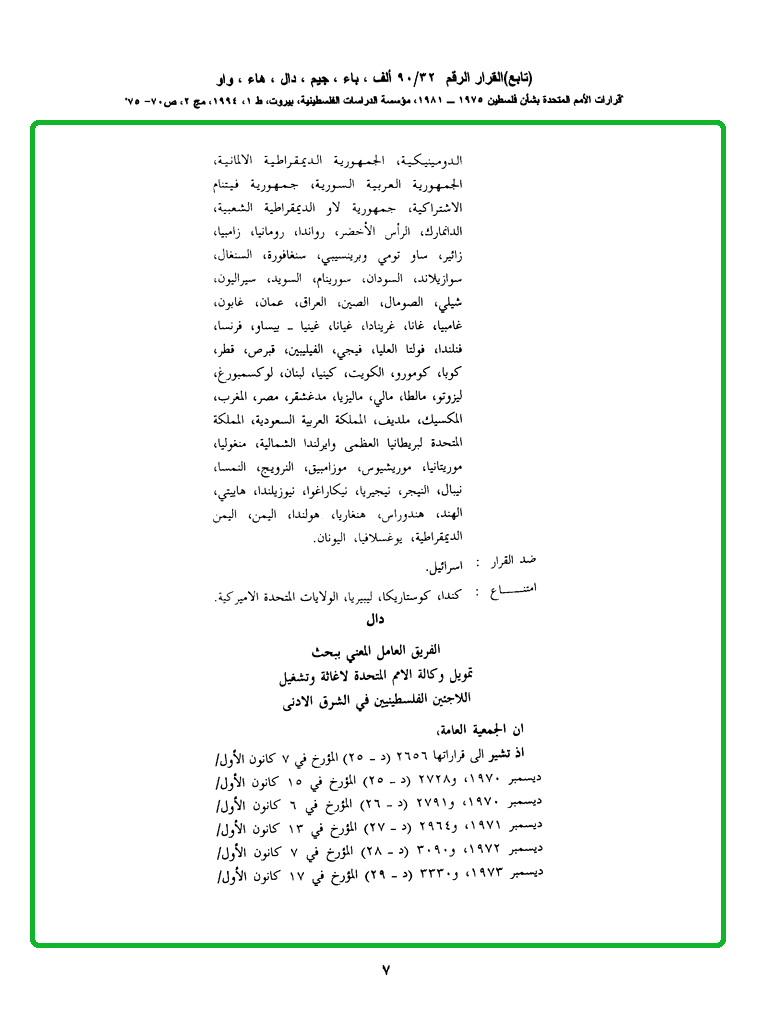 (تابع)القرار الرقم ٩٠/٣٢ ألف ، باء ، جيم ، دال ، هاء ، واو
"قرارات الأمم المتحدة بشأن فلسطين ١٩٧٥ ــ ١٩٨١، مؤسسة الدراسات الفلسطينية، بيروت، ط ١، ١٩٩٤، مج ٢، ص٧٠- ٧٥"
الدومينيكية، الجمهورية الديمقراطية الالمانية،
الجمهورية العربية السورية، جمهورية فيتنام
الاشتراكية، جمهورية لاو الديمقراطية الشعبية،
الدانمارك، الرأس الأخضر، رواندا، رومانيا، زامبيا،
زائير، ساو تومي وبرينسيبي، سنغافورة، السنغال،
سوازيلاند، السودان، سورينام، السويد، سيراليون،
شيلي، الصومال، الصين، العراق، عمان، غابون،
غامبيا، غانا، غرينادا، غيانا، غينيا ـ بيساو، فرنسا،
فنلندا، فولتا العليا، فيجي، الفيليبين، قبرص، قطر،
كوبا، كومورو، الكويت، كينيا، لبنان، لوكسمبورغ،
ليزوتو، مالطا، مالي، ماليزيا، مدغشقر، مصر، المغرب،
المكسيك، ملديف، المملكة العربية السعودية، المملكة
المتحدة لبريطانيا العظمى وايرلندا الشمالية، منغوليا،
موريتانيا، موريشيوس، موزامبيق، النرويج، النمسا،
نيبال، النيجر، نيجيريا، نيكاراغوا، نيوزيلندا، هاييتي،
الهند، هندوراس، هنغاريا، هولندا، اليمن، اليمن
الديمقراطية، يوغسلافيا، اليونان.
ضد القرار : اسرائيل.
امتنــــاع : كندا، كوستاريكا، ليبيريا، الولايات المتحدة الاميركية.
دال
الفريق العامل المعني ببحث
تمويل وكالة الامم المتحدة لاغاثة وتشغيل
اللاجئين الفلسطينيين في الشرق الادنى
ان الجمعية العامة،
اذ تشير الى قراراتها ٢٦٥٦ (د ـ ٢٥) المؤرخ في ٧ كانون الأول/
ديسمبر ١٩٧٠، و٢٧٢٨ (د ـ ٢٥) المؤرخ في ١٥ كانون الأول/
ديسمبر ١٩٧٠، و٢٧٩١ (د ـ ٢٦) المؤرخ في ٦ كانون الأول/
ديسمبر ١٩٧١، و٢٩٦٤ (د ـ ٢٧) المؤرخ في ١٣ كانون الأول/
ديسمبر ١٩٧٢، و٣٠٩٠ (د ـ ٢٨) المؤرخ في ٧ كانون الأول/
ديسمبر ١٩٧٣، و٣٣٣٠ (د ـ ٢٩) المؤرخ في ١٧ كانون الأول/
٧